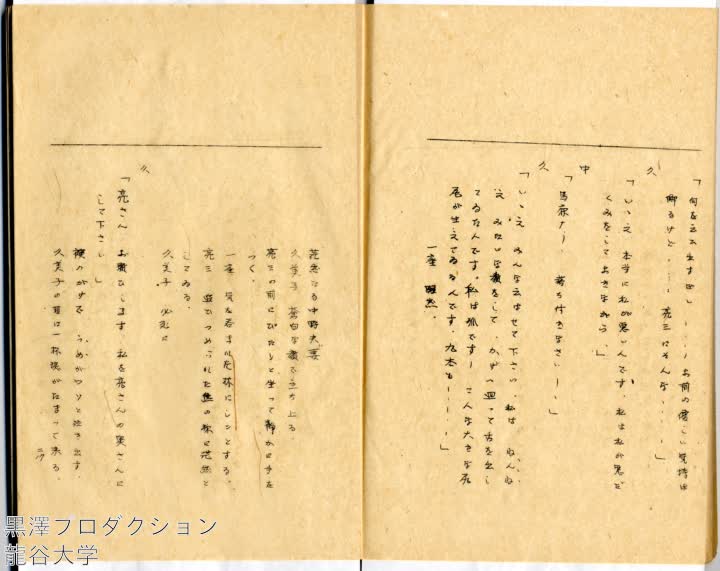 「何を云ひ出すせ…………お前の優しい気持は
解るけど……亮三にそんな……」
久
「いゝえ 本当に私が悪いんです。私は私が悪だ
くみをしておきながら。」
中
「馬鹿な! 落ち付きなさい……」
久
「いゝえ みんな云はせて下さい。私は ねんね
え みたいな顔をして、かげへ廻って舌を出し
てるなんです。私は狐です! こんな大きな尾
尾が生えてゐるんです。九本も……」
一座 唖然。
茫然たる中野夫妻
久美子 蒼白な顔で立ち上る。
亮三の前にぴたりと坐って静かに手を
つく。
一座 気を呑まれた様にシンとする。
亮三 追ひつめられた 様に茫然と
してゐる。
久美子 必死に
「亮さん お願ひします 私を亮さんの奥さんに
して下さい」
襖のかげで うめがワッと泣き出す。
久美子の目には一杯涙がたまって来る。
黒澤プロダクション
龍谷大学